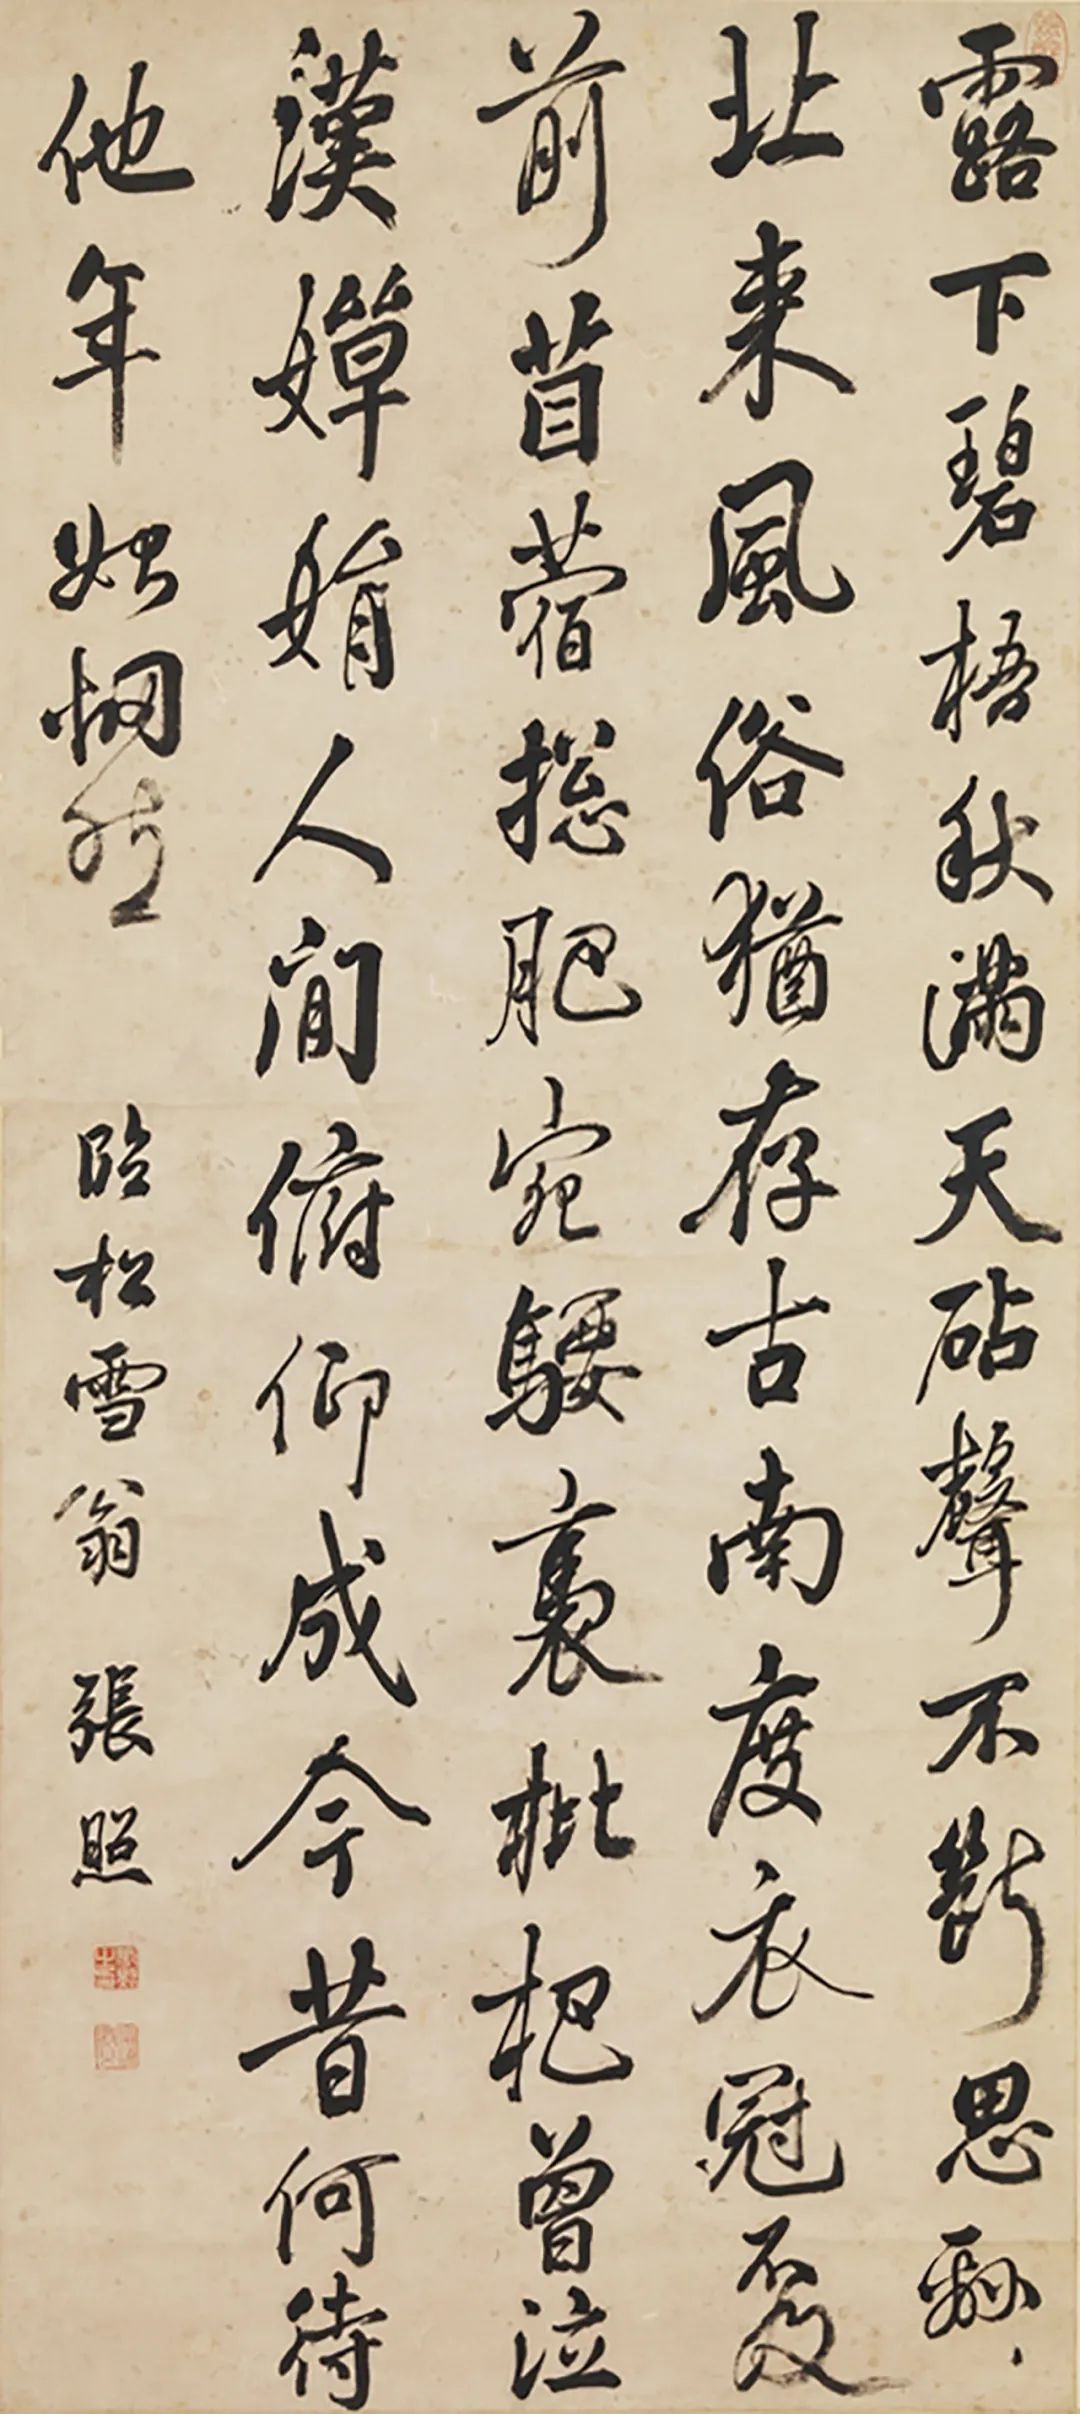 露下碧梧秋滿天砧聲不斷思緜〻
北來風俗猶存古南度衣冠不及
前苜蓿摠肥宛騕褭枇杷曾泣
漢嬋娟人間俯仰成今昔何待
他年始惘然 臨松雪翁 張照